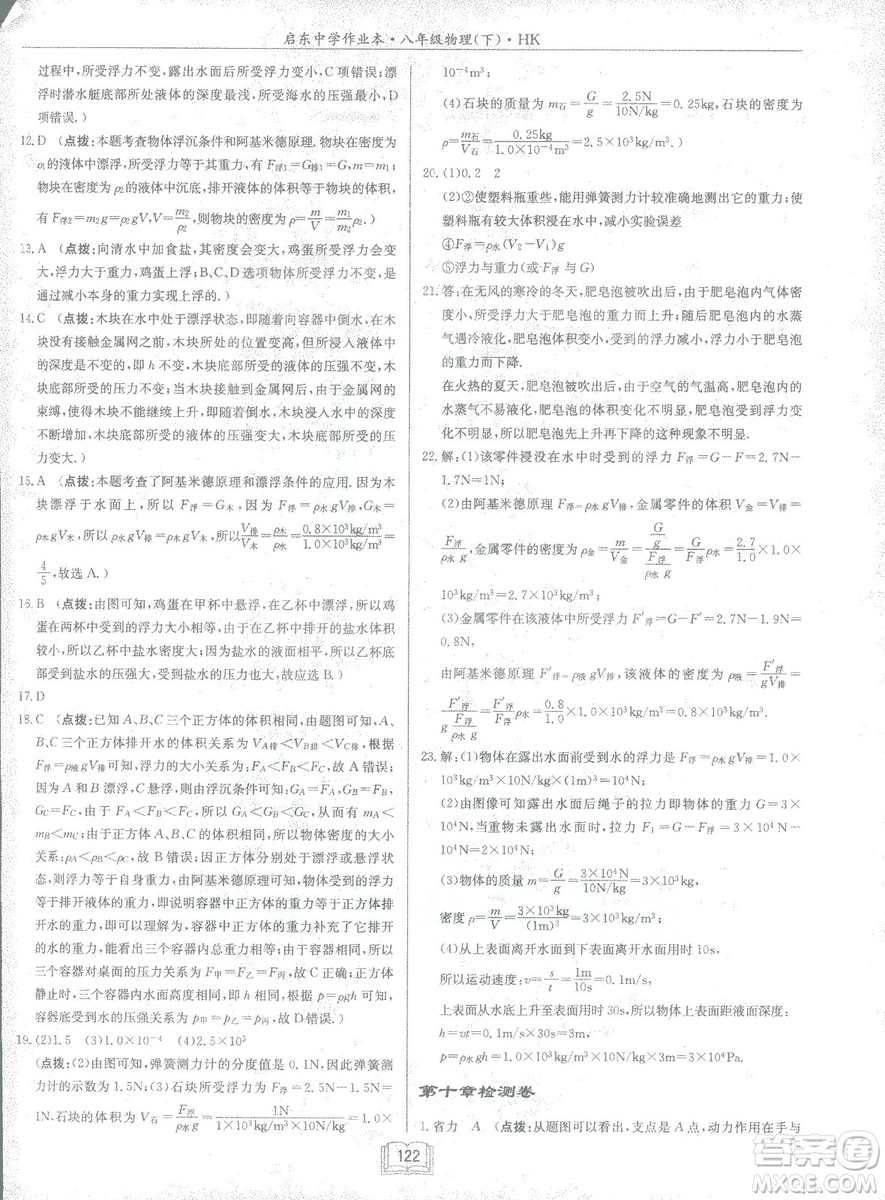 启东中学作业本·八年级物理(下)·HK
过程中,所受浮力不变,露出水面后所受浮力变小,C项错误;漂
浮时潜水艇底部所处液体的深度最浅,所受海水的压强最小,D
项错误.)
12. D (点拨:本题考查物体浮沉条件和阿基米德原理.物块在密度为
ρ1的液体中漂浮,所受浮力等于其重力,有F浮1=G,m=m1;物块
在密度为ρ2的液体中沉底,排开液体的体积等于物块的体积,
有F浮2=m2g=ρ2gV,V=m2/ρ2,则物块的密度为ρ=m/V=m1/m2·ρ2.)
13. A (点拨:向清水中加食盐,其密度会变大,鸡蛋所受浮力会变
大,浮力大于重力,鸡蛋上浮;B、C、D选项物体所受浮力不变,是
通过减小本身的重力实现上浮的.)
14. C (点拨:木块在水中处于漂浮状态,即随着向容器中倒水,在
木块没有接触金属网之前,木块所处的位置变高,但木块浸入水中
的深度是不变的,即h不变,因此木块底部所受的压强不变,木块
底部所受的压力不变;当木块接触到金属网后,由于金属网的
束缚,使得木块不能继续上升,随着倒水,木块浸入水中的深度
不断增加,木块底部所受的液体的压强不断变大,底部所受的
压力变大.)
15. A (点拨:本题考查了阿基米德原理和漂浮条件的应用.因为木
块漂浮于水面上,所以F浮=G木,因为F浮=ρ水gV排,G木=
ρ木gV木,所以ρ水gV排=ρ木gV木,所以V排/V木=ρ木/ρ水=0.8×10³kg/m³/1.0×10³kg/m³=
4/5,故选A.)
16. B (点拨:由图可知,鸡蛋在甲杯中悬浮,在乙杯中漂浮,所以
鸡蛋在两杯中受到的浮力大小相等,但乙杯中排开的盐水体积
较小,所以乙杯中盐水的密度大;盐水的液面相平,所以乙杯底
部受到盐水的压强大,压力也较大,故应选B.)
17. D
18. C (点拨:已知A、B、C三个正方体的体积相同,由题图可知,A、
B、C三个正方体排开水的体积关系为VA排<VB排<VC排,根据
F浮=ρ液gV排可知,浮力的大小关系为FA<FB<FC,故A错误;由
图可知A和B漂浮,C悬浮,则由浮沉条件可知:GA=FA,GB=
FB,GC=FC,由于FA<FB<FC,所以GA<GB<GC,所以有mA<
mB<mC;由于正方体A、B、C的体积相同,所以物体密度的大小
关系:ρA<ρB<ρC,故B错误;因正方体分别处于漂浮或悬浮状
态,则浮力等于自身重力,由阿基米德原理可知,浮力等于
排开水的重力,即说明容器中正方体的重力等于正方体排
开水的重力,即可以理解为,容器中正方体的重力补充了它排
开的水的重力,能看出三个容器内总重力相等,由于容器相同,所以
三个容器对桌面的压力关系为F甲=F乙=F丙,故C正确;正方体
静止时,三个容器内水面高度相同,即h相同,根据p=ρgh可知,
容器底部受到水的压强关系为p甲=p乙=p丙,故D错误.)
19. (2)1.5 (3)1.0×10⁻⁴ (4)2.5×10³
(点拨:(2)由图可知,弹簧测力计的分度值是0.1N,弹簧测力
计的示数为1.5N;(3)石块所受的浮力F浮=G-F=2.5N-1.5N=
1N,石块的体积为V石=F浮/ρ水g=1N/1×10³kg/m³×10N/kg=1.0×
10⁻⁴m³;
(4)石块的质量为m石=G/g=2.5N/10N/kg=0.25kg,石块的密度为
ρ石=m石/V石=0.25kg/1.0×10⁻⁴m³=2.5×10³kg/m³.)
20. (1)0.2 2
(2)使塑料瓶重些,能用弹簧测力计较准确地测出它的重力;使
塑料瓶有较大体积浸在水中,减小实验误差
④F浮=ρ水(V2-V1)g
⑤浮力与重力(或F浮与G)
21. 答:在无风的寒冷的冬天,肥皂泡被吹出后,由于肥皂泡内气体
密度小,肥皂泡所受浮力大于肥皂泡的重力而上升;肥皂泡内的水蒸
气遇冷液化,肥皂泡体积变小,浮力变小,浮力小于肥皂泡的
重力而下降.
在火热的夏天,肥皂泡被吹出后,由于空气的气温高,肥皂泡内的
水蒸气不易液化,肥皂泡的体积变化不明显,肥皂泡受到浮力变
化不明显,所以夏天肥皂泡先上升后下降的这种现象不明显.
22. 解:(1)该零件浸没在水中时受到的浮力F浮=G-F=2.7N-
1.7N=1N;
(2)由阿基米德原理F浮=ρ水gV排得,金属零件的体积V金=V排=
F浮/ρ水g,金属零件的密度为ρ金=m/V金=G/g/F浮/ρ水g=G/F浮ρ水=2.7/1×1.0×
10³kg/m³=2.7×10³kg/m³;
(3)金属零件在该液体中所受浮力F′浮=G-F′=2.7N-1.9N=
0.8N,
由阿基米德原理F′浮=ρ液gV排得,该液体的密度为ρ液=F′浮/gV排=
F′浮/F浮/ρ水g·g=F′浮/F浮ρ水=0.8/1.0×1.0×10³kg/m³=0.8×10³kg/m³.
23. 解:(1)物体在露出水面前受到水的浮力是F浮=ρ水gV排=1.0×
10³kg/m³×10N/kg×(1m)³=10⁴N;
(2)由图像可知露出水面后绳子的拉力即物体的重力G=3×
10⁴N,当重物未露出水面时,钢绳的拉力F1=G-F浮=3×10⁴N-
10⁴N=2×10⁴N;
(3)物体的质量m=G/g=3×10⁴N/10N/kg=3×10³kg,
密度ρ=m/V=3×10³kg/(1m)³=3×10³kg/m³;
(4)从上表面离开水面到下表面离开水面用时10s,
所以运动速度v=s/t=1m/10s=0.1m/s,
上表面从水底上升至表面用时30s,所以物体上表面距液面深度
h=vt=0.1m/s×30s=3m,
p=ρ水gh=1.0×10³kg/m³×10N/kg×3m=3×10⁴Pa.
第十章检测卷
1. 省力 A (点拨:从题图可以看出,支点是A点,动力作用在手与
122